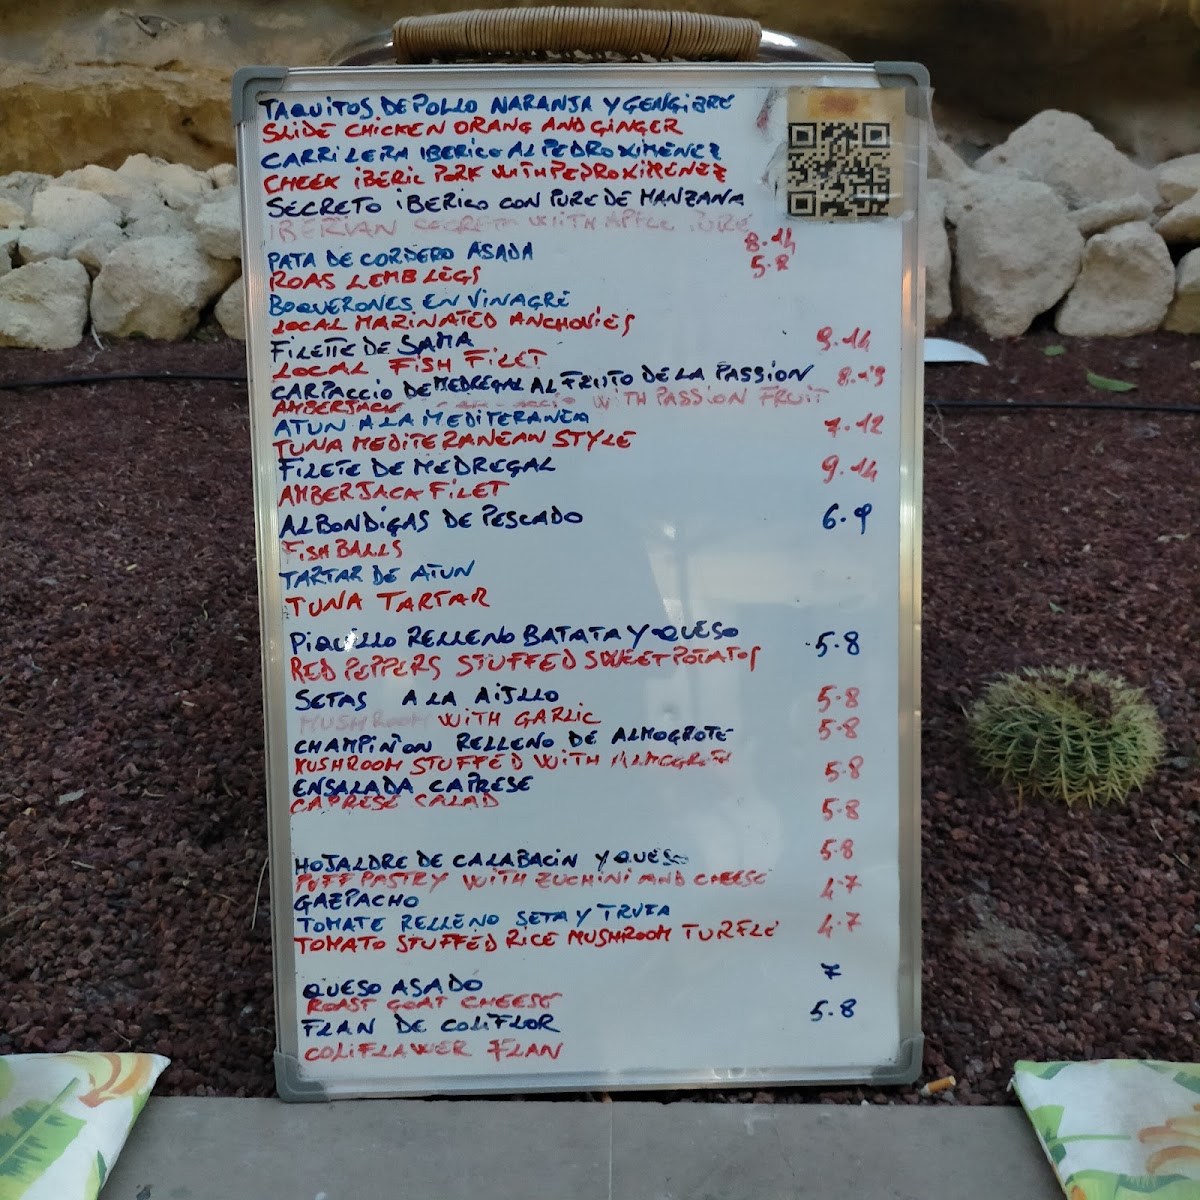 TAQUITOS DE POLLO NARANJA Y GENGIBRE
SLIDE CHICKEN ORANG AND GINGER
CARRILERA IBERICO AL PEDRO XIMENEZ
CHEEK IBERIC PORK WITH PEDRO XIMENEZ
SECRETO IBERICO CON PURE DE MANZANA
IBERIAN SECRETO WITH APPLE PURE
8.14
PATA DE CORDERO ASADA
5.8
ROAS LEMB LEGS
BOQUERONES EN VINAGRE
LOCAL MARINATED ANCHOVIES
FILETTE DE SAMA 9.14
LOCAL FISH FILET
CARPACCIO DE MEDREGAL AL FRUTO DE LA PASSION 8.13
AMBERJACK WITH PASSION FRUIT
ATUN A LA MEDITERANEA 7.12
TUNA MEDITERANEAN STYLE
FILETE DE MEDREGAL 9.14
AMBERJACK FILET
ALBONDIGAS DE PESCADO 6.9
FISH BALLS
TARTAR DE ATUN
TUNA TARTAR
PIQUILLO RELLENO BATATA Y QUESO 5.8
RED PEPPERS STUFFED SWEET POTATOS
SETAS A LA AIJLLO 5.8
MUSHROOM WITH GARLIC
CHAMPIÑON RELLENO DE ALMOGROTE 5.8
MUSHROOM STUFFED WITH ALMOGROTE
ENSALADA CAPRESE 5.8
CAPRESE SALAD 5.8
HOJALDRE DE CALABACIN Y QUESO 5.8
PUFF PASTRY WITH ZUCHINI AND CHEESE
GAZPACHO 4.7
TOMATE RELLENO SETA Y TRUFA
TOMATO STUFFED RICE MUSHROOM TURFLE 4.7
QUESO ASADO 7
ROAST GOAT CHEESE
FLAN DE COLIFLOR 5.8
COLIFLAWER FLAN